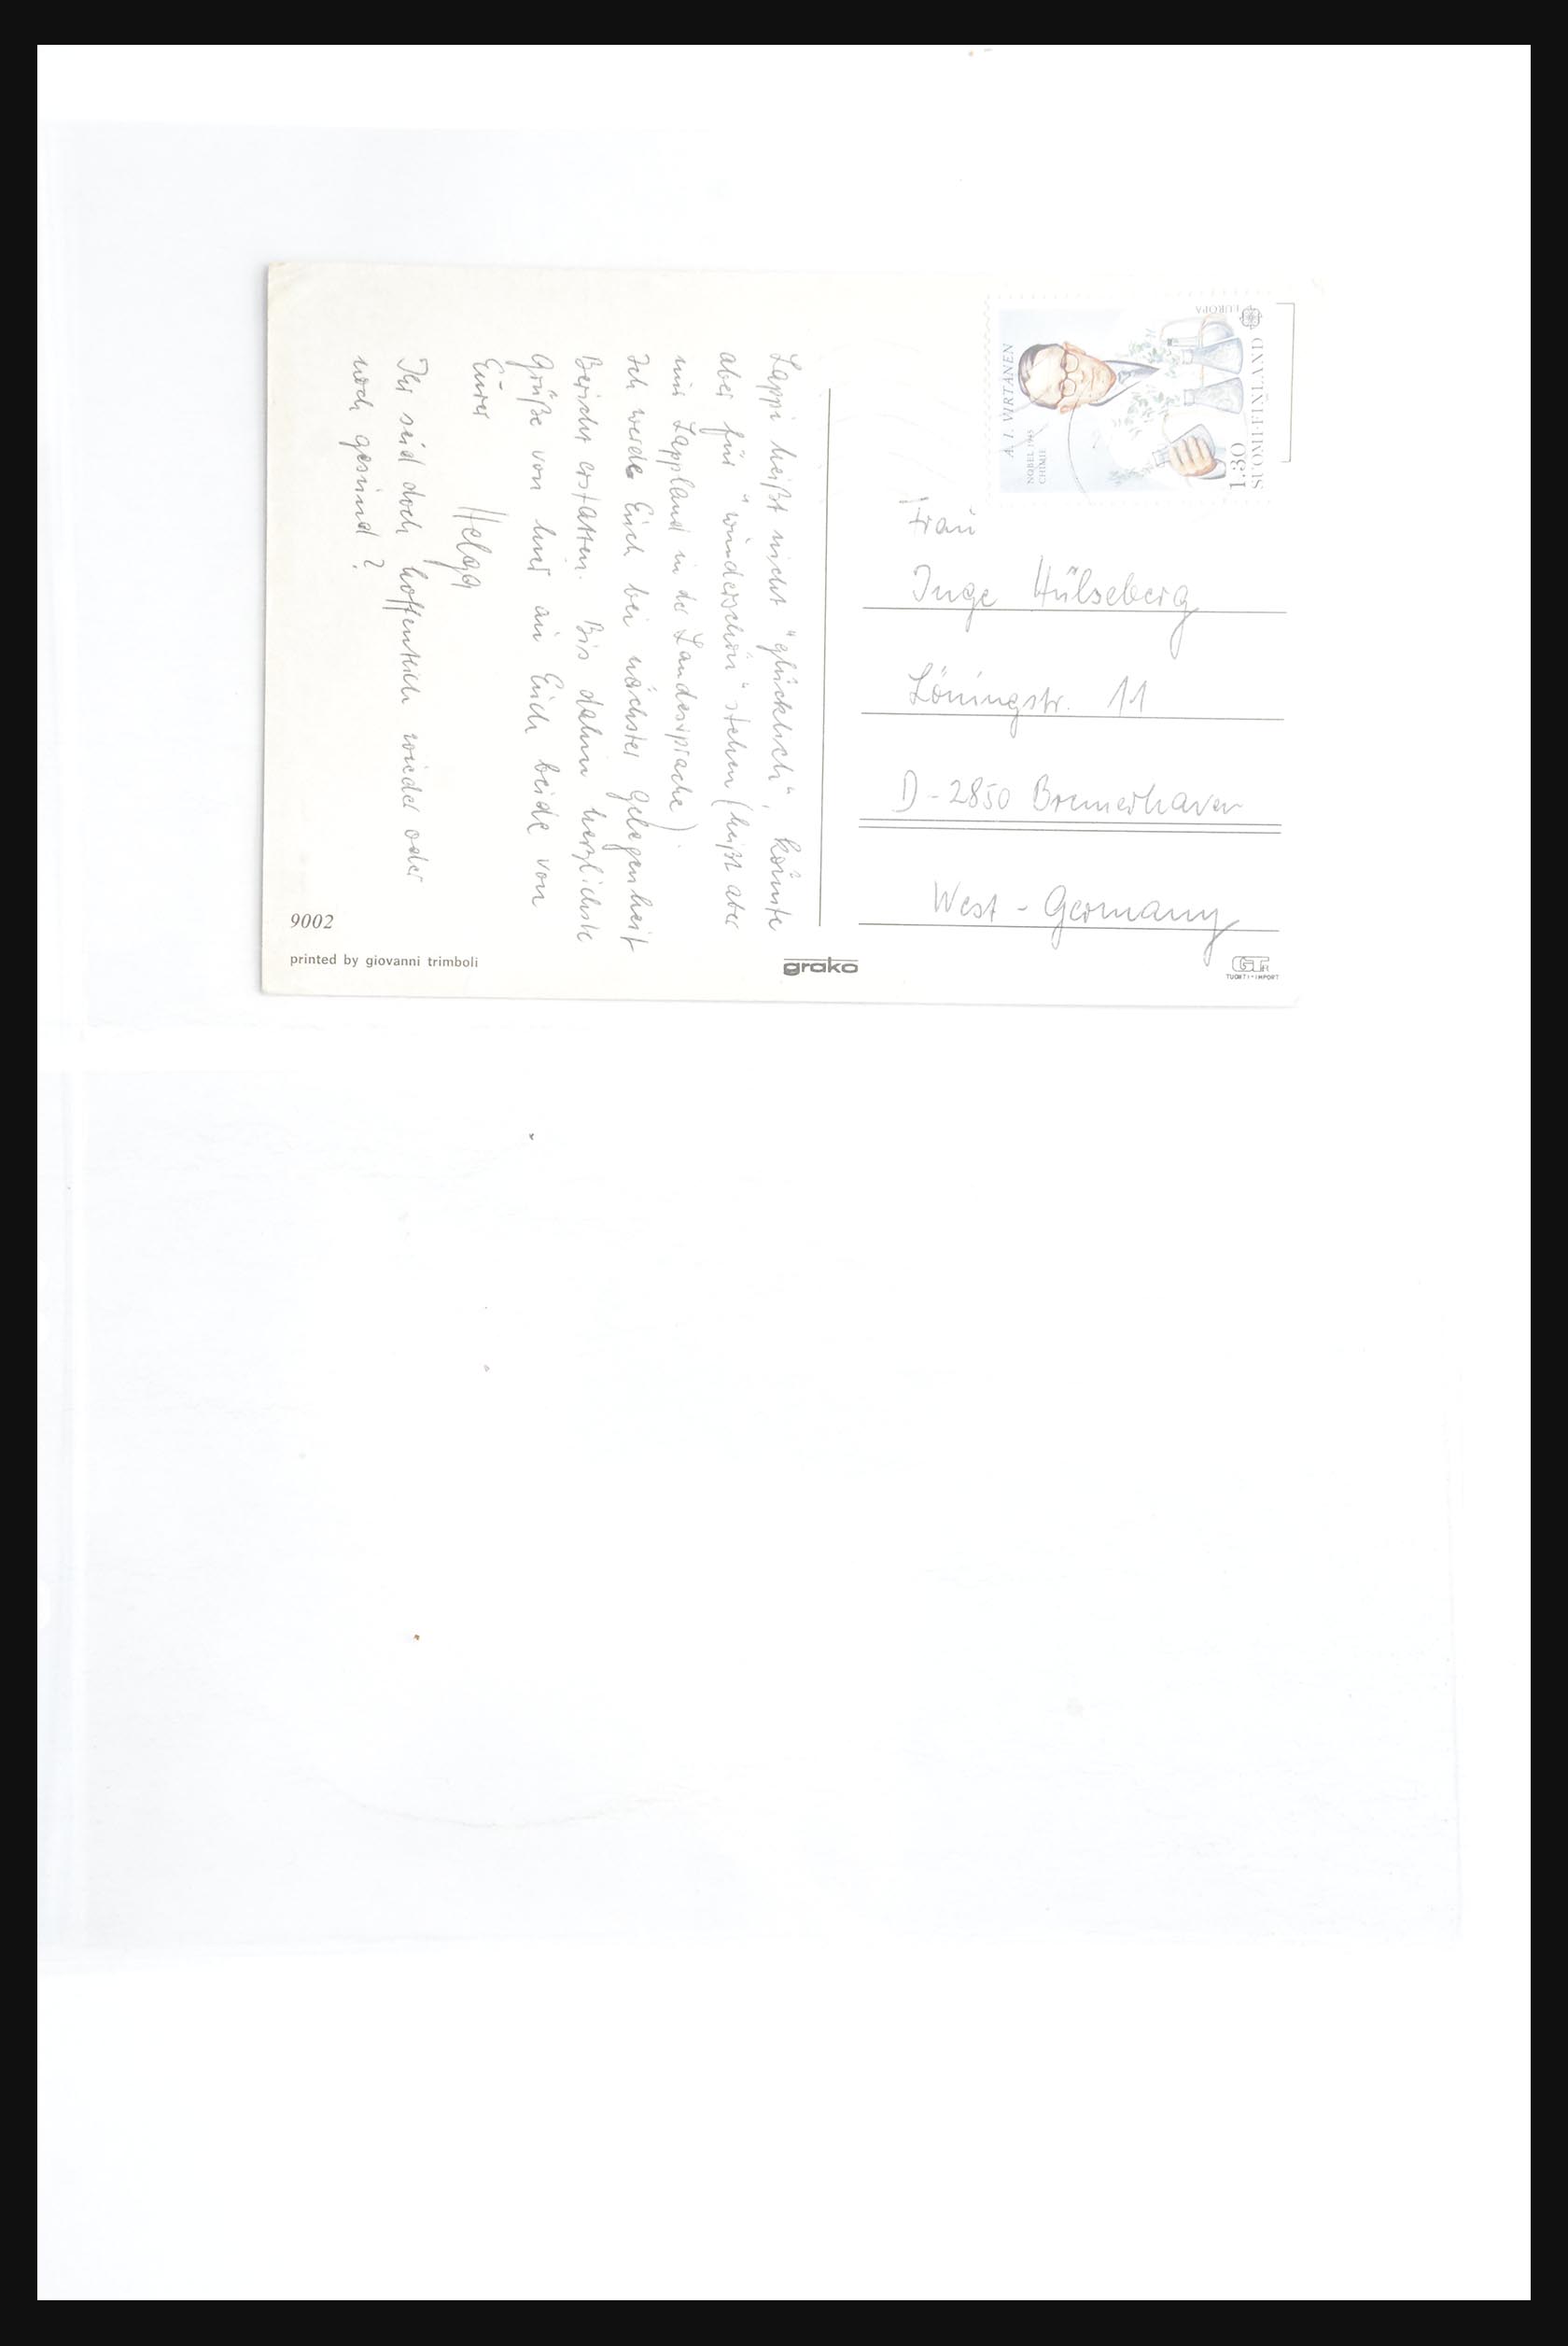 Lappi heißt nicht "glücklich", könnte
aber für "wunderschön" stehen (heißt aber
nur Lappland in der Landessprache).
Ich werde Euch bei nächster Gelegenheit
Bericht erstatten. Bis dahin herzlichste
Grüße von hier an Euch beide von
Eurer Helga
Ihr seid doch hoffentlich wieder oder
noch gesund?
A. I. VIRTANEN
NOBEL 1945
CHIMIE
EUROPA
1.30
SUOMI-FINLAND
Frau
Inge Hülseberg
Löningstr. 11
D-2850 Bremerhaven
West-Germany
9002
printed by giovanni trimboli
grako
GT